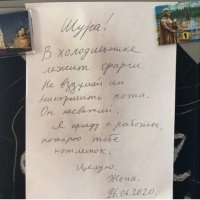 Шура!
В холодильнике
лежит фарш.
Не вздумай им
накормить кота.
Он несвежий.
Я приеду с работы,
пожарю тебе
котлеток.
Целую.
Жена.
26.06.2020.